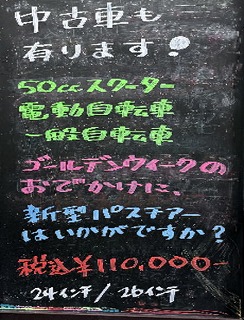 中古車も
有ります!
50ccスクーター
電動自転車
一般自転車
ゴールデンウィークの
おでかけに、
新型パスチアー
はいかがですか?
税込¥110,000-
24インチ/26インチ